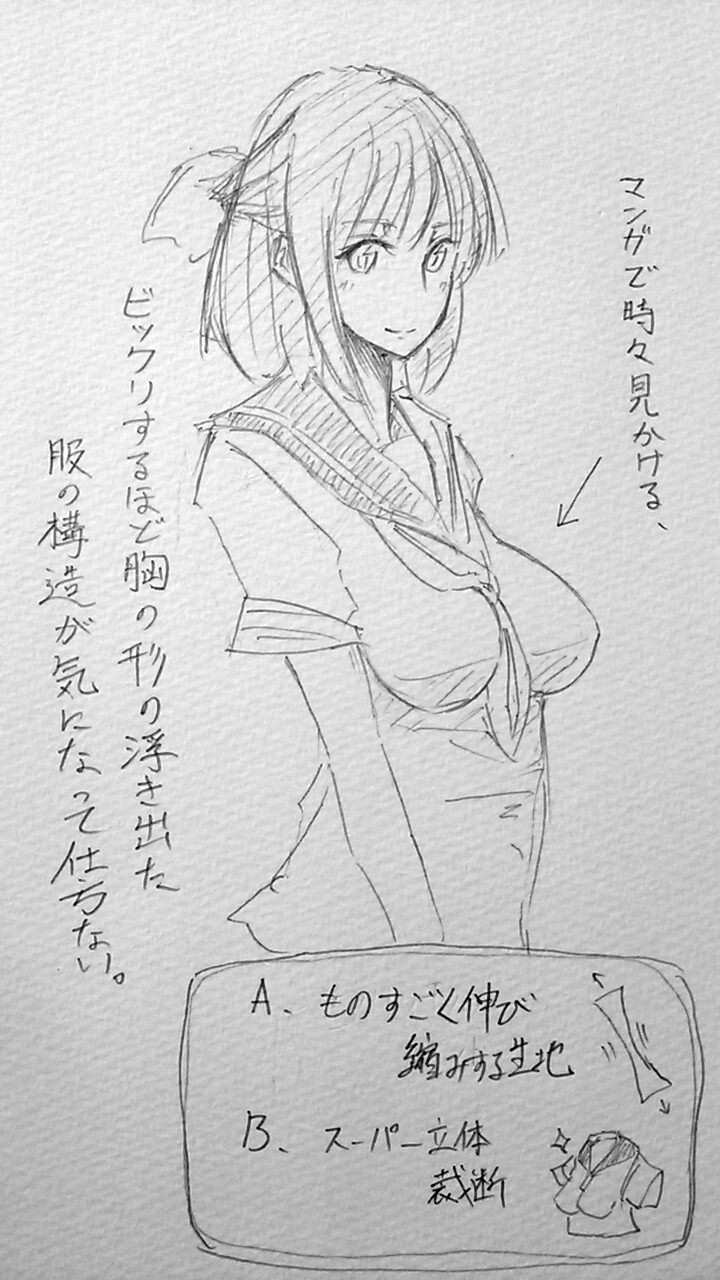 マンガで時々見かける、
ビックリするほど胸の形の浮き出た
服の構造が気になって仕方ない。
A、ものすごく伸び
縮みする生地
B、スーパー立体
裁断